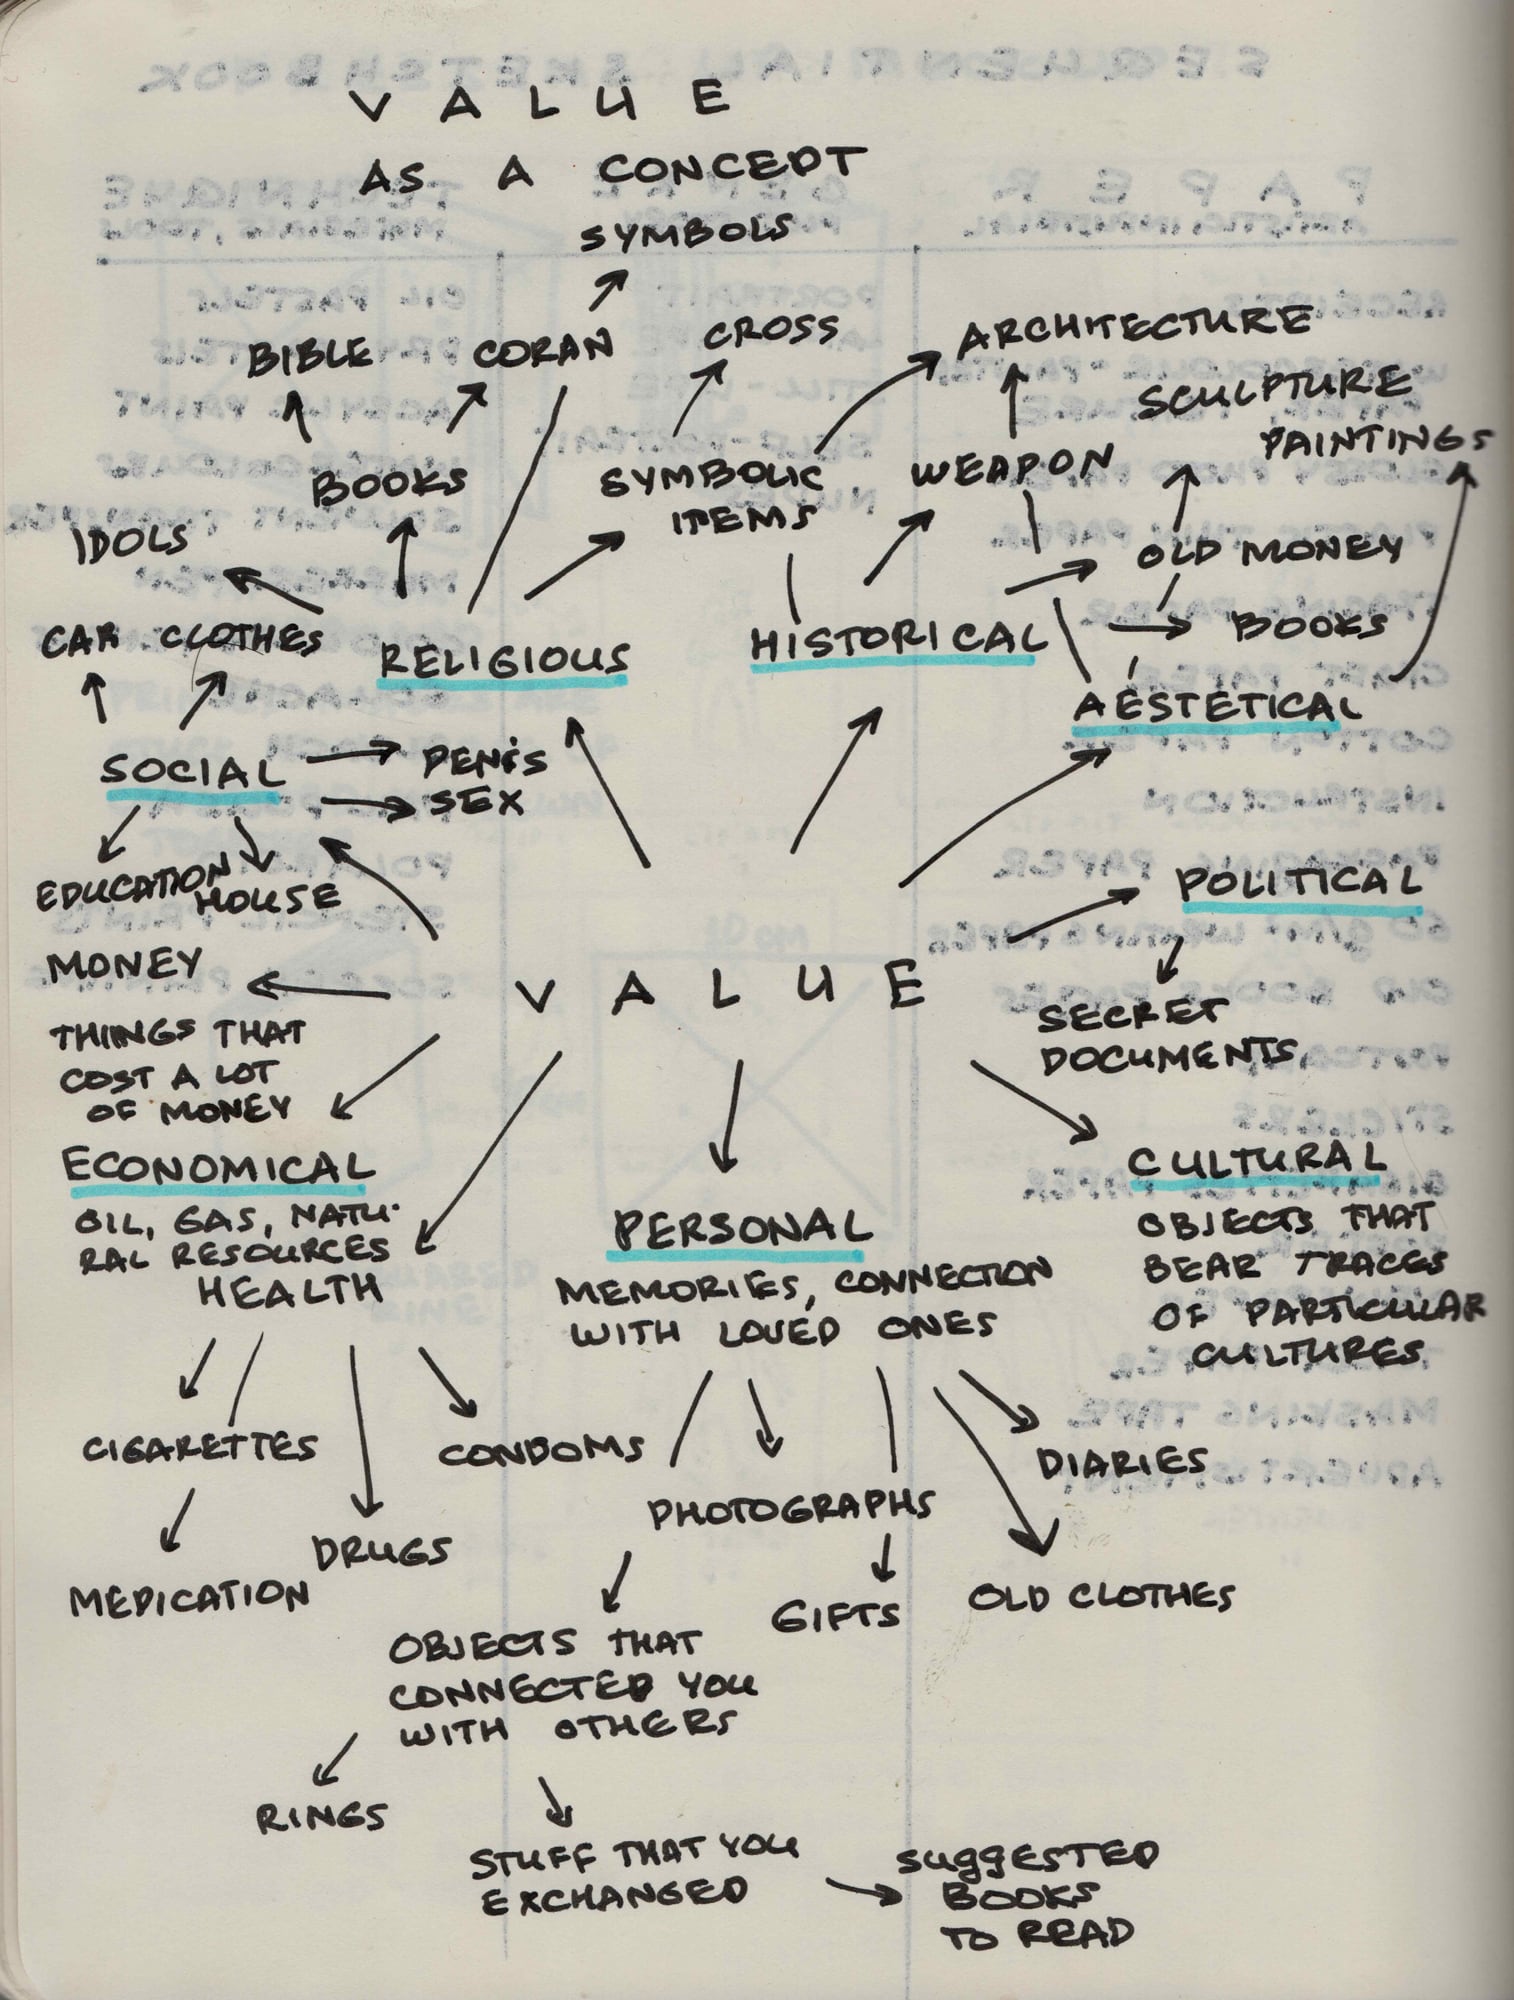 VALUE
AS A CONCEPT
SYMBOLS
BIBLE
CORAN
CROSS
ARCHITECTURE
SCULPTURE
PAINTINGS
BOOKS
SYMBOLIC
ITEMS
WEAPON
IDOLS
OLD MONEY
CAR
CLOTHES
RELIGIOUS
HISTORICAL
BOOKS
AESTETICAL
SOCIAL
PENIS
SEX
EDUCATION
HOUSE
POLITICAL
MONEY
VALUE
SECRET
DOCUMENTS
THINGS THAT
COST A LOT
OF MONEY
ECONOMICAL
OIL, GAS, NATU-
RAL RESOURCES
HEALTH
PERSONAL
MEMORIES, CONNECTION
WITH LOVED ONES
CULTURAL
OBJECTS THAT
BEAR TRACES
OF PARTICULAR
CULTURES
CIGARETTES
CONDOMS
DIARIES
PHOTOGRAPHS
DRUGS
MEDICATION
GIFTS
OLD CLOTHES
OBJECTS THAT
CONNECTED YOU
WITH OTHERS
RINGS
STUFF THAT YOU
EXCHANGED
SUGGESTED
BOOKS
TO READ